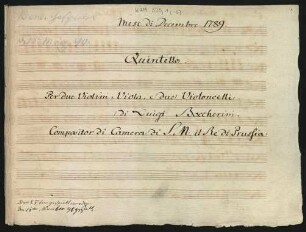 Mese di Decembre 1789
Quintetto
Per due Violini, Viola, e due Violoncelli
di Luigi Boccherini
Compositor di Camera di S. M. il Re di Prussia